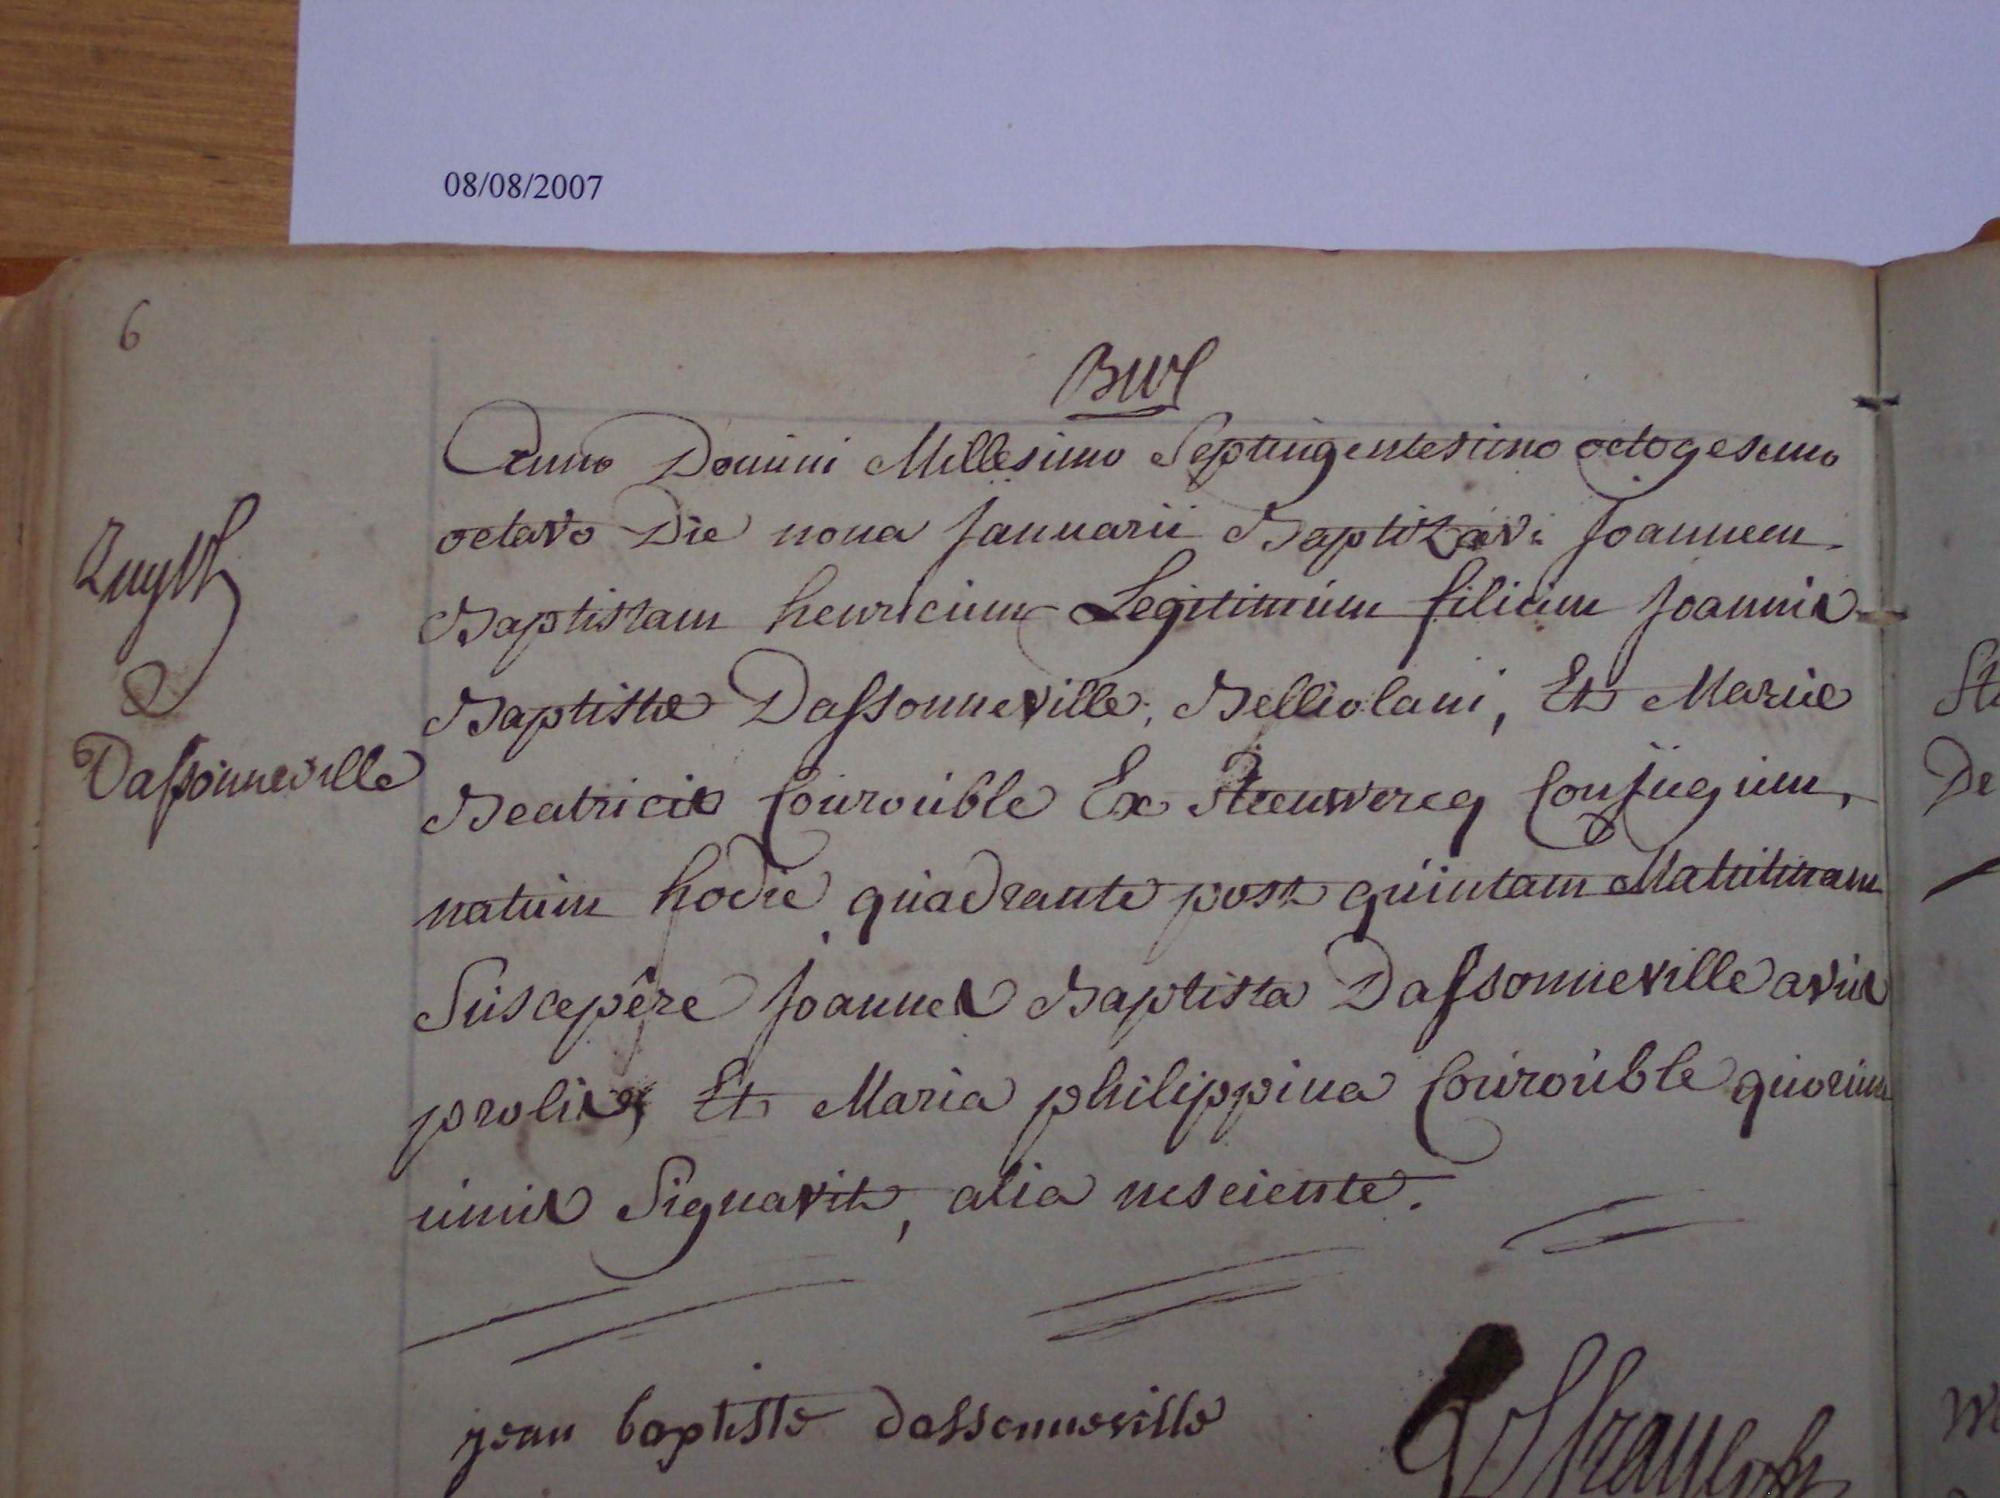 08/08/2007
6
Anno Domini Millesimo Septingentesimo octogesimo
octavo Die nona Januarii Baptizavi Joannem
Baptistam henricum Legitimum filium Joannis
Baptistæ Dassonneville, Belliolani, Et Mariæ
Dassonneville
Beatricis Couroúble Ex Steenwercq Conjúgúm,
natúm hodie quadrante post qúintam Matutinam
Súscepêre Joannes Baptista Dassonneville avús
prolis, Et Maria philippina Coúroúble quorúm
únús Signavit, alia nesciente.
jean baptiste dassonneville